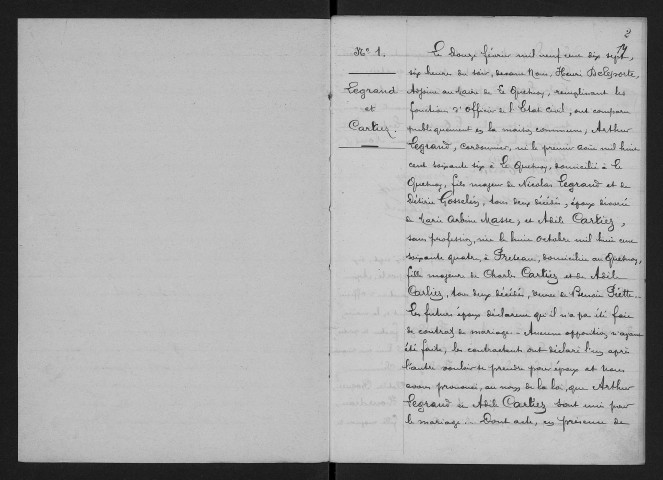 2
19
N° 1.
Legrand
et
Cartiez.
Le Douze février mil neuf cent dix sept,
six heures du soir, devant Nous, Henri Delsporte,
Adjoint au Maire de Le Quesnoy, remplissant les
fonctions d'Officier de l'Etat civil, ont comparu
publiquement en la maison commune, Arthur
Legrand, cordonnier, né le premier août mil huit
cent soixante six à Le Quesnoy, domicilié à Le
Quesnoy, fils majeur de Nicolas Legrand et de
Désirée Gosselin, tous deux décédés, époux divorcé
de Marie Masse, et Adèle Cartiez,
sans profession, née le huit octobre mil huit cent
soixante quatre, à Préseau, domiciliée au Quesnoy,
fille majeure de Charles Cartiez et de Adèle
Carlier, tous deux décédés, veuve de Benoit Piette.
Les futurs époux déclarent qu'il n'a pas été fait
de contrat de mariage. Aucune opposition n'ayant
été faite, les contractants ont déclaré l'un après
l'autre vouloir se prendre pour époux et nous
avons prononcé, au nom de la loi, que Arthur
Legrand et Adèle Cartiez sont unis par
le mariage. Dont acte, en présence de